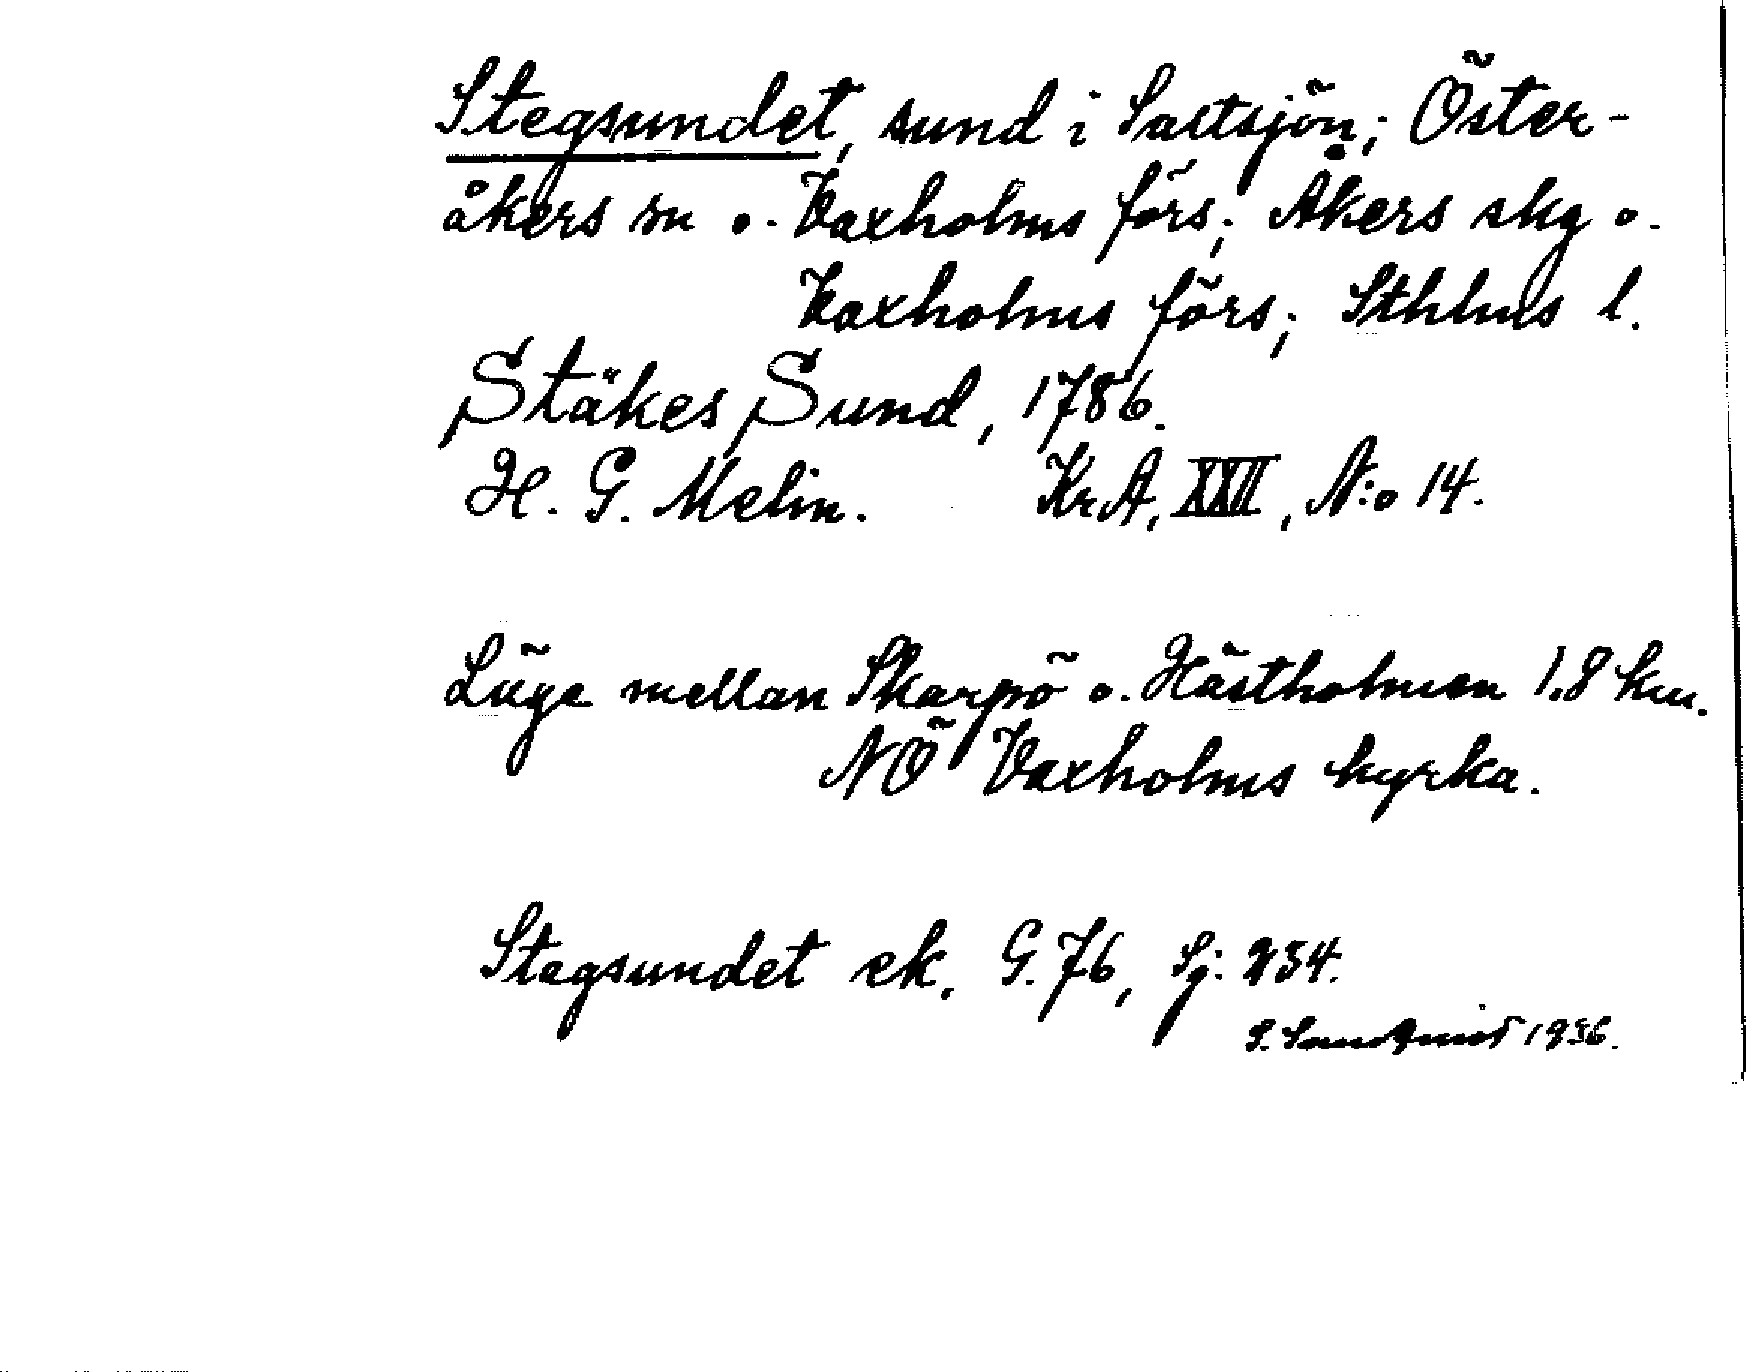 Stegsundet, sund i Saltsjön; Öster-
åkers sn o. Vaxholms förs; Åkers skg o.
Vaxholms förs; Sthlms l.
Stäkes Sund, 1786.
H. G. Melin. KrA, XXII, N:o 14.
Läge mellan Skarpö o. Hästholmen 1.8 km.
NÖ Vaxholms kyrka.
Stegsundet ek. G. 76, Sj: 234.
S. 1936.